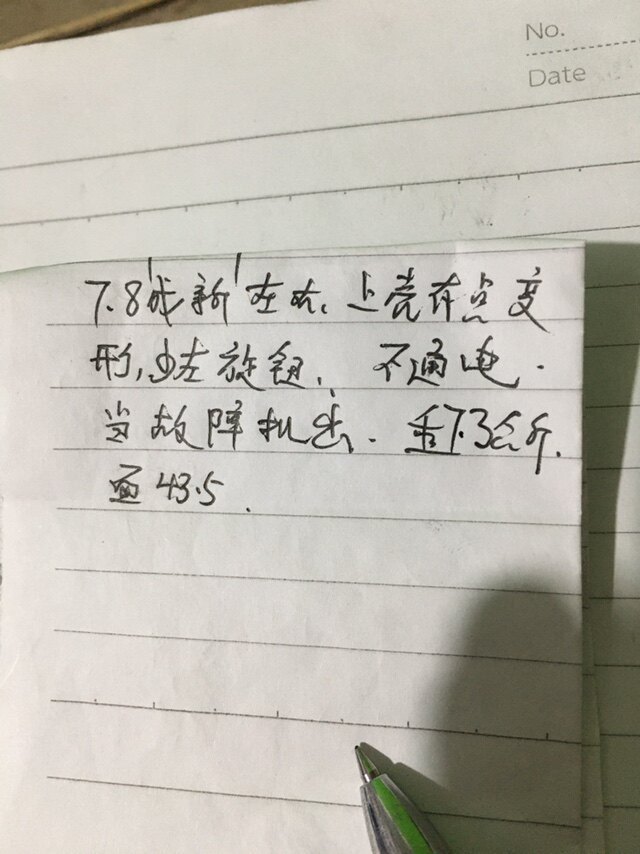 No.
Date
7.8成新左右、上壳有点变
形,少左旋钮、不通电.
当故障机出.重7.3公斤.
面43.5.